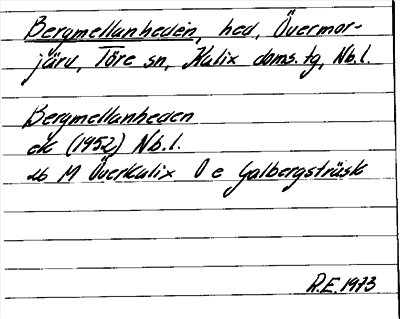 Bergmellanheden, hed, Övermor-
järv, Töre sn, Kalix doms.tg, Nb.l.
Bergmellanheden
ek (1952) Nb.l.
M Överkalix Ö e Galbergsträsk
R.E. 1973